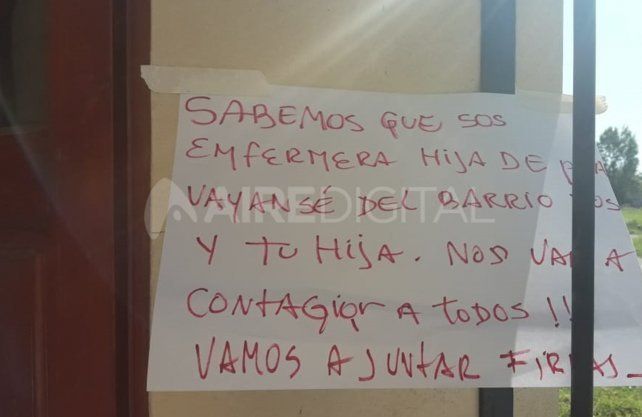 SABEMOS QUE SOS
EMFERMERA HIJA DE
VAYANSÉ DEL BARRIO VOS
Y TU HIJA. NOS VAN A
CONTAGIAR A TODOS !!
VAMOS A JUNTAR FIRMAS_
AIREDIGITAL